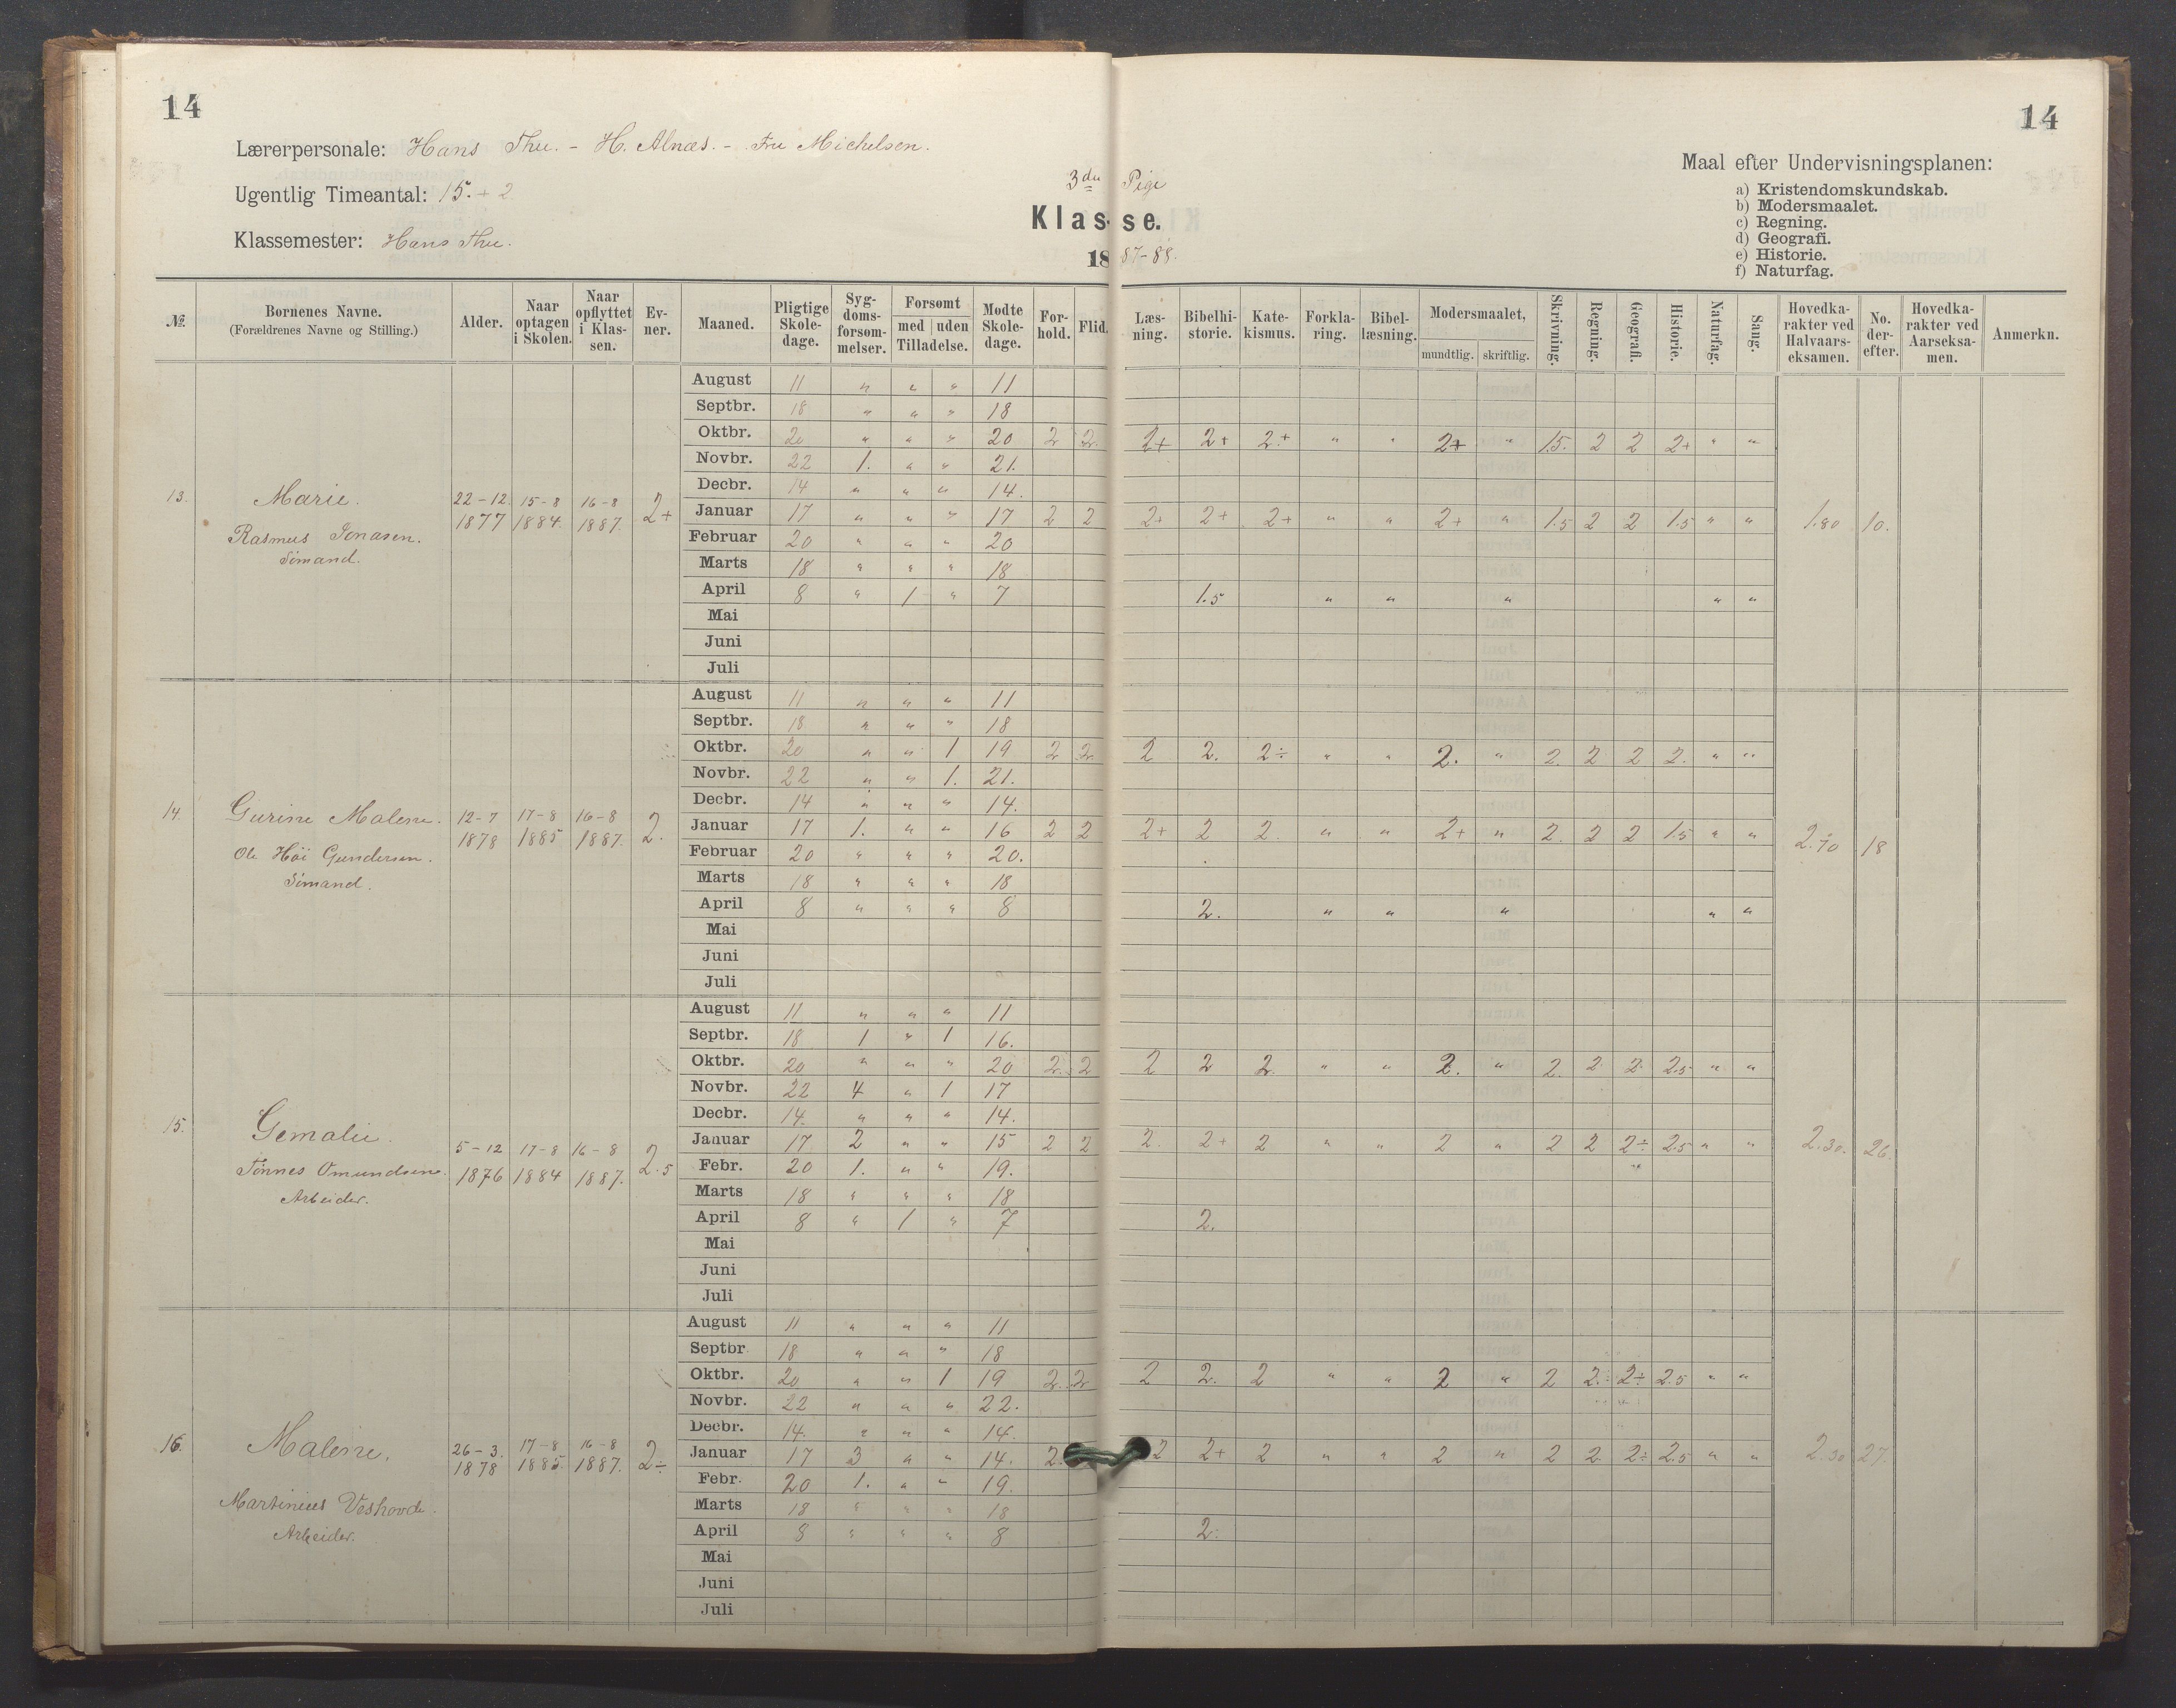 14
14
Lærerpersonale: Hans Thu. - H. Alnæs. - Fru Michelsen.
Ugentlig Timeantal: 15. + 2
Klassemester: Hans Thu.
3die Pige
Klasse.
1887-88.
Maal efter Undervisningsplanen:
a) Kristendomskundskab.
b) Modersmaalet.
c) Regning.
d) Geografi.
e) Historie.
f) Naturfag.
№. Børnenes Navne. (Forældrenes Navne og Stilling.) Alder. Naar optagen i Skolen. Naar opflyttet i Klassen. Evner. Maaned. Pligtige Skoledage. Sygdomsforsømmelser. Forsømt med uden Tilladelse. Mødte Skoledage. Forhold. Flid. Læsning. Bibelhistorie. Katekismus. Forklaring. Bibellæsning. Modersmaalet, mundtlig. skriftlig. Skrivning. Regning. Geografi. Historie. Naturfag. Sang. Hovedkarakter ved Halvaarseksamen. No. derefter. Hovedkarakter ved Aarseksamen. Anmerkn.
13. Marie.
Rasmus Jonasen.
Sømand.
22-12. 1877 15-8 1884. 16-8 1887. 2+
August 11 " " " 11
Septbr. 18 " " " 18
Oktbr. 20 " " " 20 2 2. 2+ 2+ 2.+ " " 2+ " 1.5. 2 2 2+ " "
Novbr. 22 1. " " 21.
Decbr. 14 " " " 14.
Januar 17 " " " 17 2 2 2+ 2+ 2+ " " 2+ " 1.5 2 2 1.5 " " 1.80 10.
Februar 20 " " " 20
Marts 18 " " " 18
April 8 " 1 " 7 1.5 " " " " "
Mai
Juni
Juli
14. Gurine Malene.
Ole Høi Gundersen.
Sømand.
12-7 1878 17-8 1885 16-8 1887. 2.
August 11 " " " 11
Septbr. 18 " " " 18
Oktbr. 20 " " 1 19 2 2 2 2. 2÷ " " 2. " 2. 2 2 2. " "
Novbr. 22 " " 1. 21.
Decbr. 14 " " " 14.
Januar 17 1. " " 16 2 2 2+ 2 2. " " 2+ " 2. 2 2 1.5 " " 2.10 18
Februar 20 " " " 20.
Marts 18 " " " 18
April 8 " " " 8 2. " " " " "
Mai
Juni
Juli
15. Gemalie.
Tønnes Omundsen.
Arbeider.
5-12 1876 17-8 1884 16-8 1887. 2.5
August 11 " " " 11
Septbr. 18 1 " 1 16.
Oktbr. 20 " " " 20 2. 2 2 2 2. " " 2. " 2. 2 2 2.5 " "
Novbr. 22 4 " 1 17
Decbr. 14. " " " 14.
Januar 17 2 " " 15 2 2 2. 2+ 2 " " 2 " 2 2 2÷ 2.5 " " 2.30. 26.
Febr. 20 1. " " 19.
Marts 18 " " " 18
April 8 " 1 " 7 2.
Mai
Juni
Juli
16. Malene.
Martinius Veshovde.
Arbeider.
26-3. 1878 17-8 1885. 16-8 1887. 2÷
August 11 " " " 11
Septbr 18 " " " 18
Oktbr. 20 " " 1 19 2. 2 2 2. 2 " " 2 " 2 2÷ 2÷ 2.5 " "
Novbr. 22 " " " 22.
Decbr. 14. " " " 14.
Januar 17 3 " " 14. 2. 2 2+ 2 " " 2 " 2 2 2÷ 2.5 " " 2.30 27.
Febr. 20 1. " " 19.
Marts 18 " " " 18
April 8 " " " 8 2.
Mai
Juni
Juli